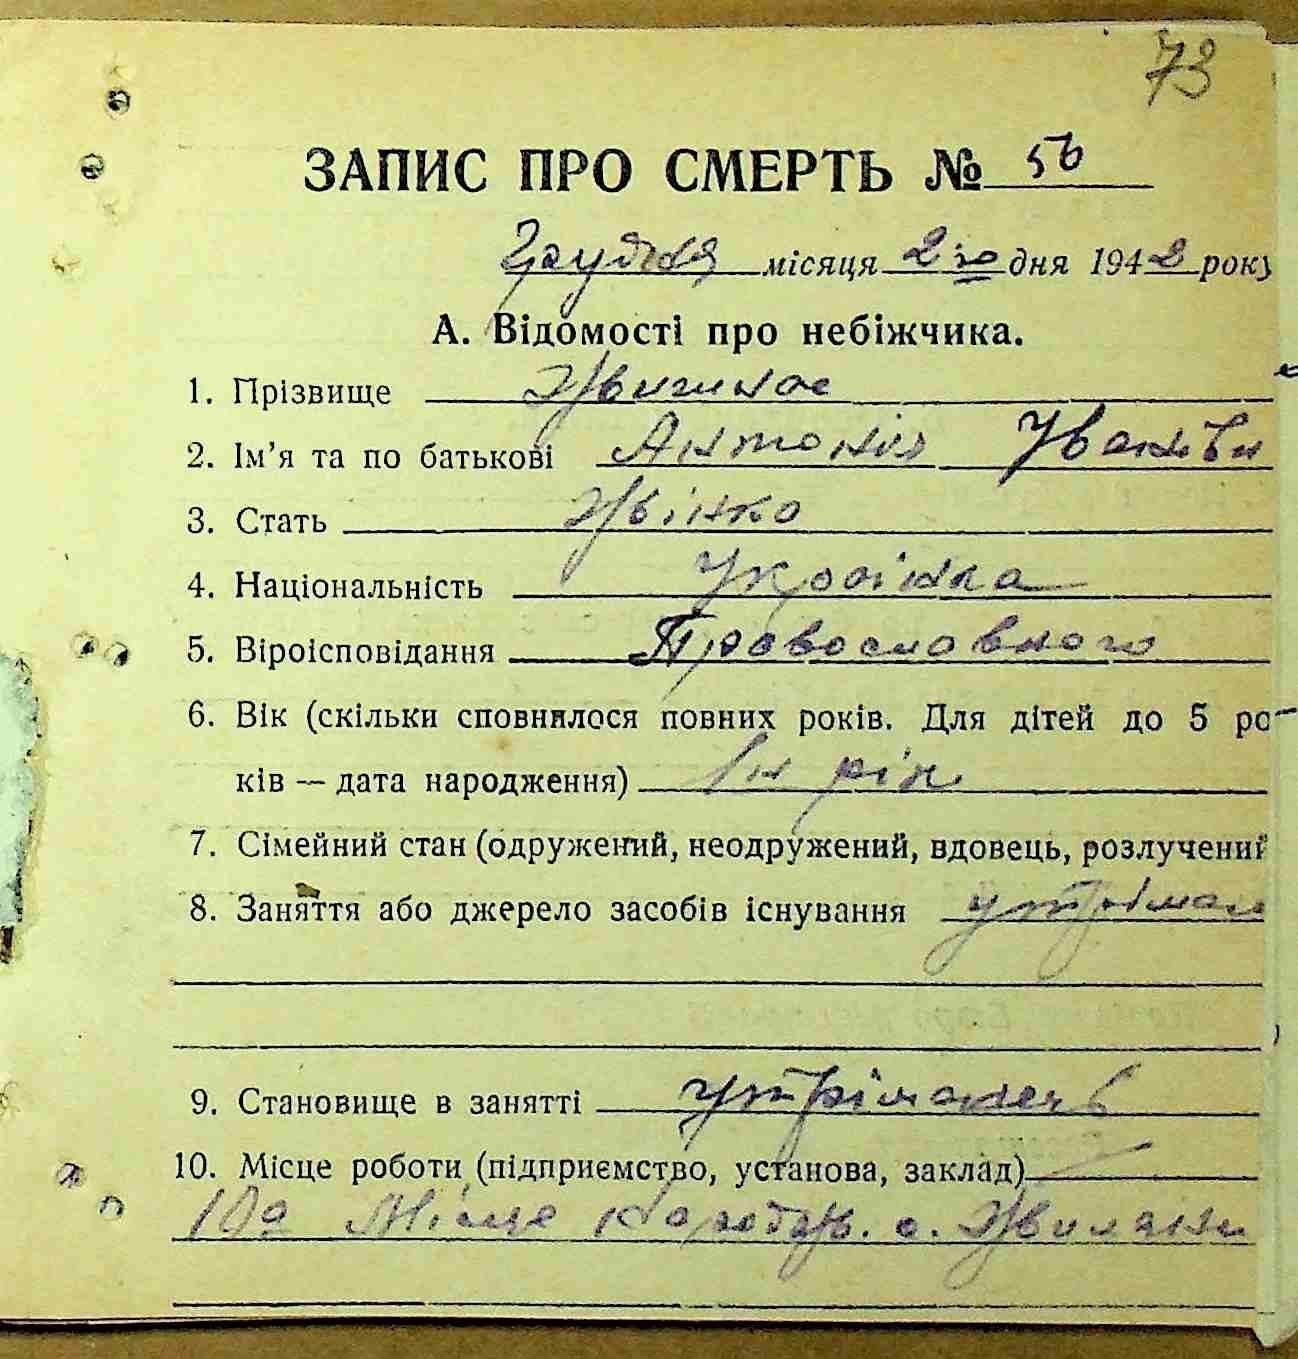 73
ЗАПИС ПРО СМЕРТЬ № 56
Грудня місяця 2го дня 1942 року
А. Відомості про небіжчика.
1. Прізвище
2. Ім’я та по батькові Антонія Уванівн
3. Стать Жінка
4. Національність Українка
5. Віроісповідання Православного
6. Вік (скільки сповнилося повних років. Для дітей до 5 ро-
ків — дата народження) рік
7. Сімейний стан (одружений, неодружений, вдовець, розлучений
8. Заняття або джерело засобів існування утріман
9. Становище в занятті утріманець
10. Місце роботи (підприємство, установа, заклад)
10а Місце народж. с.